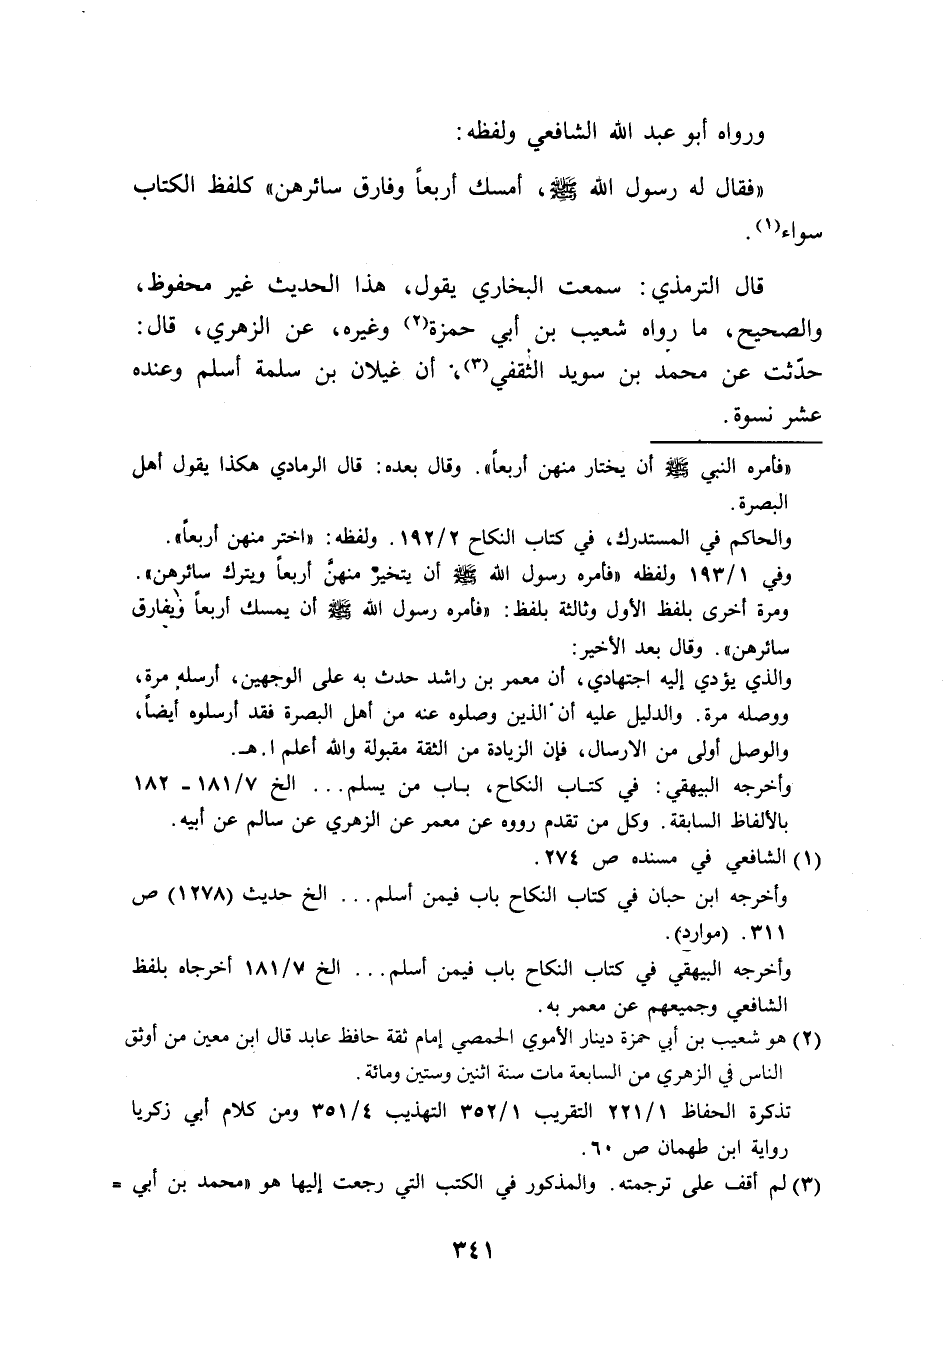 ورواه أبو عبد الله الشافعي ولفظه:
«فقال له رسول الله ﷺ، أمسك أربعاً وفارق سائرهن» كلفظ الكتاب
سواء(١).
قال الترمذي: سمعت البخاري يقول، هذا الحديث غير محفوظ،
والصحيح، ما رواه شعيب بن أبي حمزة(٢) وغيره، عن الزهري، قال:
حدّثت عن محمد بن سويد الثقفي(٣)، أن غيلان بن سلمة أسلم وعنده
عشر نسوة.
«فأمره النبي ﷺ أن يختار منهن أربعاً». وقال بعده: قال الرمادي هكذا يقول أهل
البصرة.
والحاكم في المستدرك، في كتاب النكاح ١٩٢/٢. ولفظه: «اختر منهن أربعاً».
وفي ١٩٣/١ ولفظه «فأمره رسول الله ﷺ أن يتخيرْ منهنَّ أربعاً ويترك سائرهن».
ومرة أخرى بلفظ الأول وثالثة بلفظ: «فأمره رسول الله ﷺ أن يمسك أربعاً ويفارق
سائرهن». وقال بعد الأخير:
والذي يؤدي إليه اجتهادي، أن معمر بن راشد حدث به على الوجهين، أرسله مرة،
ووصله مرة. والدليل عليه أن الذين وصلوه عنه من أهل البصرة فقد أرسلوه أيضاً،
والوصل أولى من الارسال، فإن الزيادة من الثقة مقبولة والله أعلم ا.هـ.
وأخرجه البيهقي: في كتاب النكاح، باب من يسلم... الخ ١٨١/٧ - ١٨٢
بالألفاظ السابقة. وكل من تقدم رووه عن معمر عن الزهري عن سالم عن أبيه.
(١) الشافعي في مسنده ص ٢٧٤.
وأخرجه ابن حبان في كتاب النكاح باب فيمن أسلم... الخ حديث (١٢٧٨) ص
٣١١. (موارد).
وأخرجه البيهقي في كتاب النكاح باب فيمن أسلم... الخ ١٨١/٧ أخرجاه بلفظ
الشافعي وجميعهم عن معمر به.
(٢) هو شعيب بن أبي حمزة دينار الأموي الحمصي إمام ثقة حافظ عابد قال ابن معين من أوثق
الناس في الزهري من السابعة مات سنة اثنين وستين ومائة.
تذكرة الحفاظ ٢٢١/١ التقريب ٣٥٢/١ التهذيب ٣٥١/٤ ومن كلام أبي زكريا
رواية ابن طهمان ص ٦٠.
(٣) لم أقف على ترجمته. والمذكور في الكتب التي رجعت إليها هو «محمد بن أبي =
٣٤١